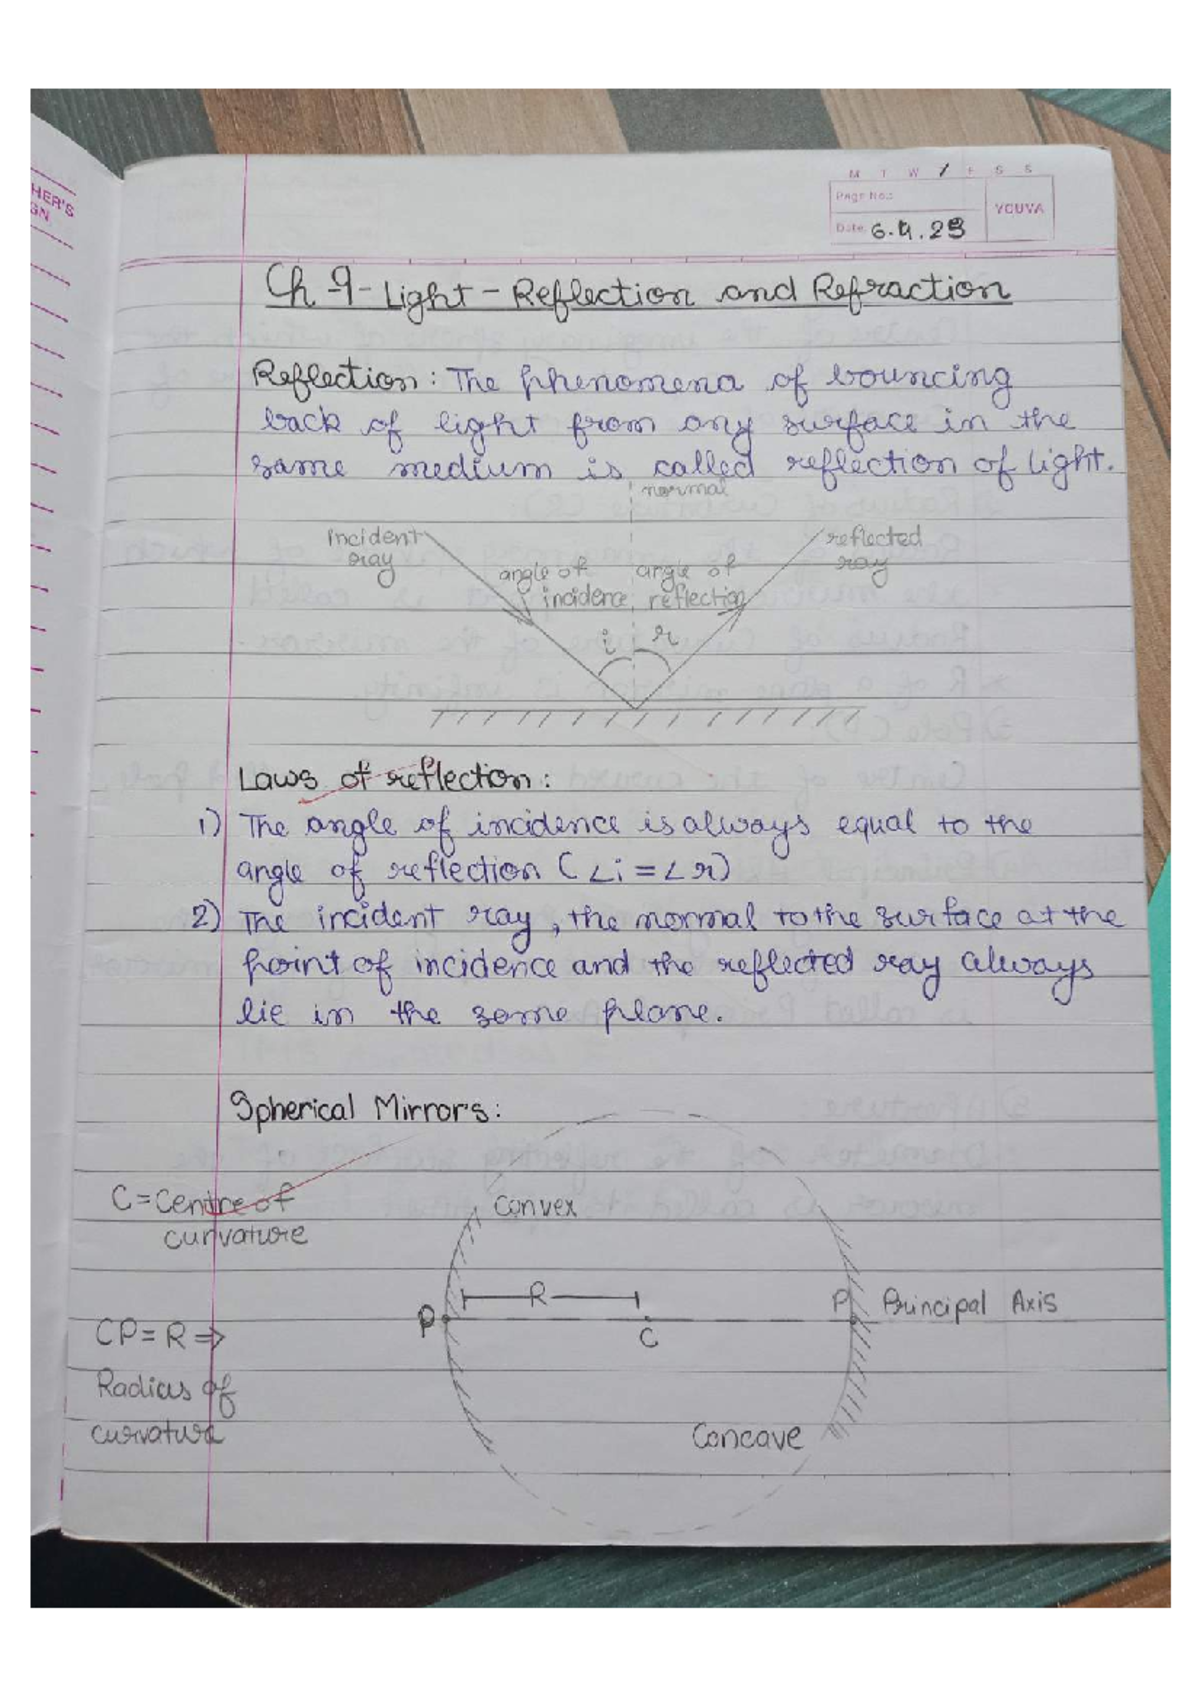 HER'S
GN
M T W F S S
Page No.:
YOUVA
Date: 6.4.23
Ch 9 - Light - Reflection and Refraction
Reflection: The phenomena of bouncing
back of light from any surface in the
same medium is called reflection of light.
normal
incident
ray
reflected
ray
angle of
incidence
angle of
reflection
i
r
Laws of reflection:
1) The angle of incidence is always equal to the
angle of reflection (∠i = ∠r)
2) The incident ray, the normal to the surface at the
point of incidence and the reflected ray always
lie in the same plane.
Spherical Mirrors:
C = Centre of
curvature
Convex
R
P
C
P
Principal Axis
CP = R ⇒
Radius of
curvature
Concave